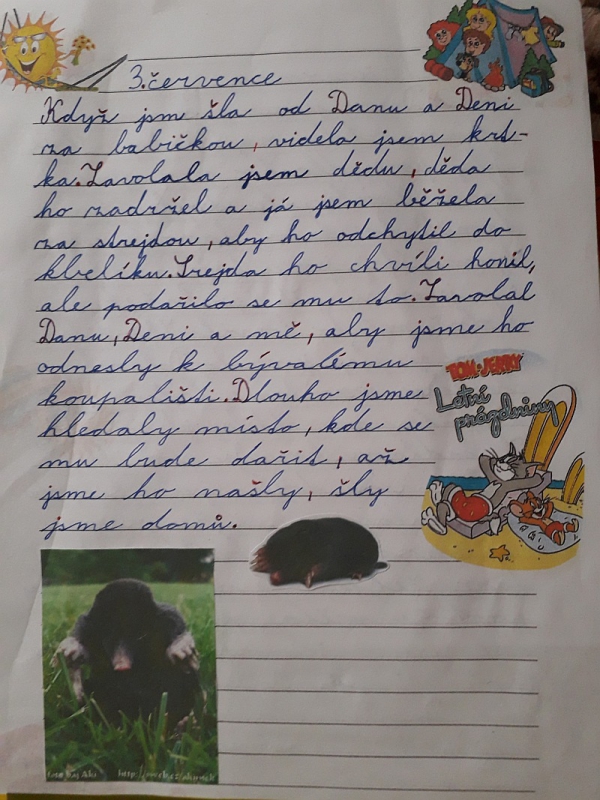 3. července
Když jsm šla od Danu a Deni
za babičkou, videla jsem krt-
ka. Zavolala jsem dědu, děda
ho zadržel a já jsem běžela
za strejdou, aby ho odchytil do
kbelíku. Srejda ho chvíli honil,
ale podařilo se mu to. Zavolal
Danu, Deni a mě, aby jsme ho
odnesly k bývalému
koupališti. Dlouho jsme
hledaly místo, kde se
mu bude dařit, až
jsme ho našly, šly
jsme domů.
TOM and JERRY
Letní
prázdniny